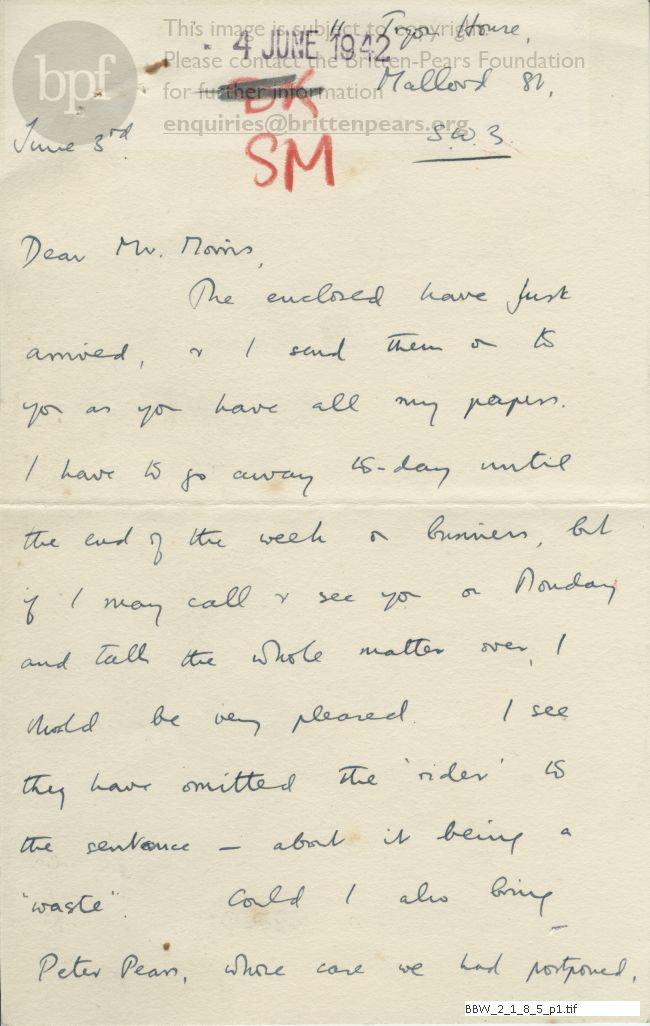 This image is subject to copyright.
Please contact the Britten-Pears Foundation
for further information
enquiries@brittenpears.org
bpf
- 4 JUNE 1942
BK
SM
House,
Mallord St,
S.W.3.
June 3rd
Dear Mr. Morris,
The enclosed have just
arrived, & I send them on to
you as you have all my papers.
I have to go away to-day until
the end of the week on business, but
if I may call & see you on Monday
and talk the whole matter over, I
should be very pleased. I see
they have omitted the 'rider' to
the sentence — about it being a
"waste". Could I also bring
Peter Pears, whose case we had postponed.
BBW_2_1_8_5_p1.tif